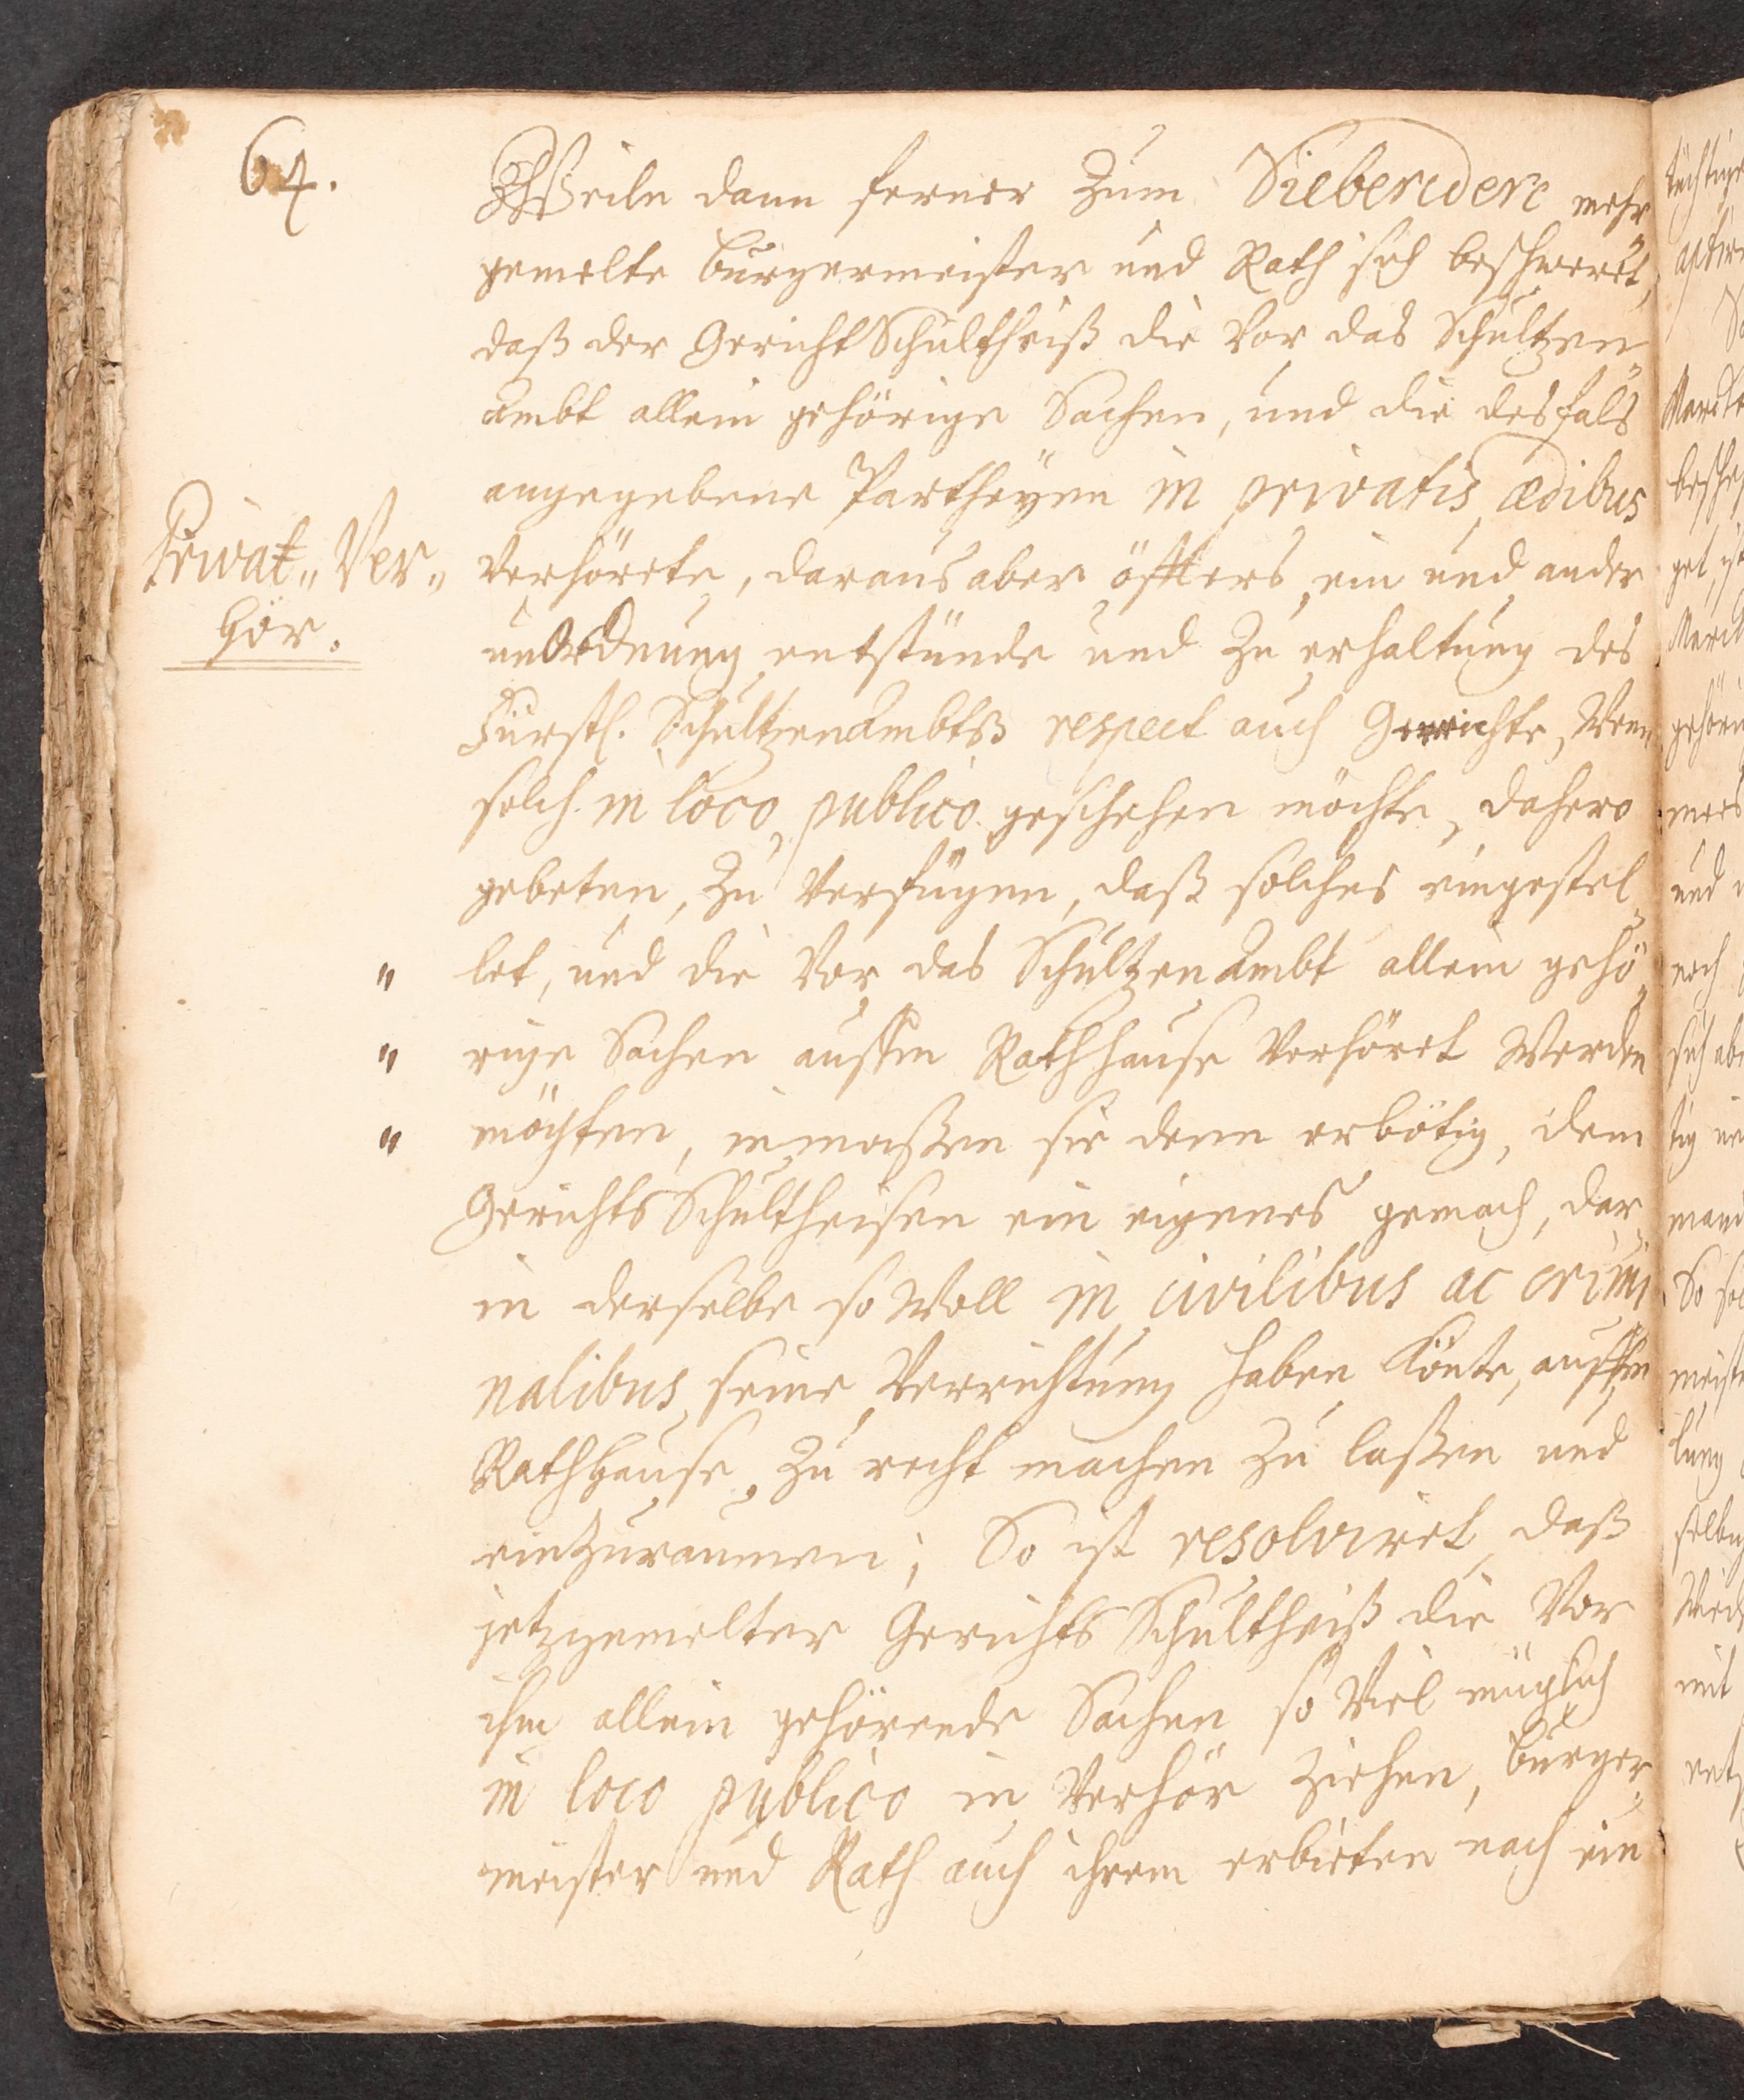 64.
Weiln dann ferner Zum Siebendern mehr
gemelte Burgermeister und Rath sich beschweret,
daß der Gericht Schultheiß die Vor das Schultzen„
ambt allein gehörige Sachen, und die desfals
angegebene Partheyen in privatis ædibus
Privat„ Ver„
hör.
Verhörete, daraus aber öffters ein und ander
unOrdnung entstünde und Zu erhaltung des
Fürstl. SchultzenAmbtß respect auch Gerichte, Wenn
solch in loco publico geschehen möchte, dahero
gebeten, Zu Verfügen, daß solches eingestel„
" let, und die Vor das SchultzenAmbt allein gehö„
" rige Sachen aussm Rathhause Verhöret Werden
" möchten, inmaßen sie denn erbötig, dem
Gerichts Schultheisen ein eigenes gemach, dar„
in derselbe so Woll in civilibus ac crimi
nalibus seine Verrichtung haben Könte, auffm
Rathhause, Zu recht machen Zu laßen und
einZuraumen; So ist resolviret daß
jetzgemelter Gerichts Schultheiß die Vor
ihm allein gehörende Sachen so Viel müglich
in loco publico in Verhör Ziehen, Burger„
meister und Rath auch ihrem erbieten nach ein